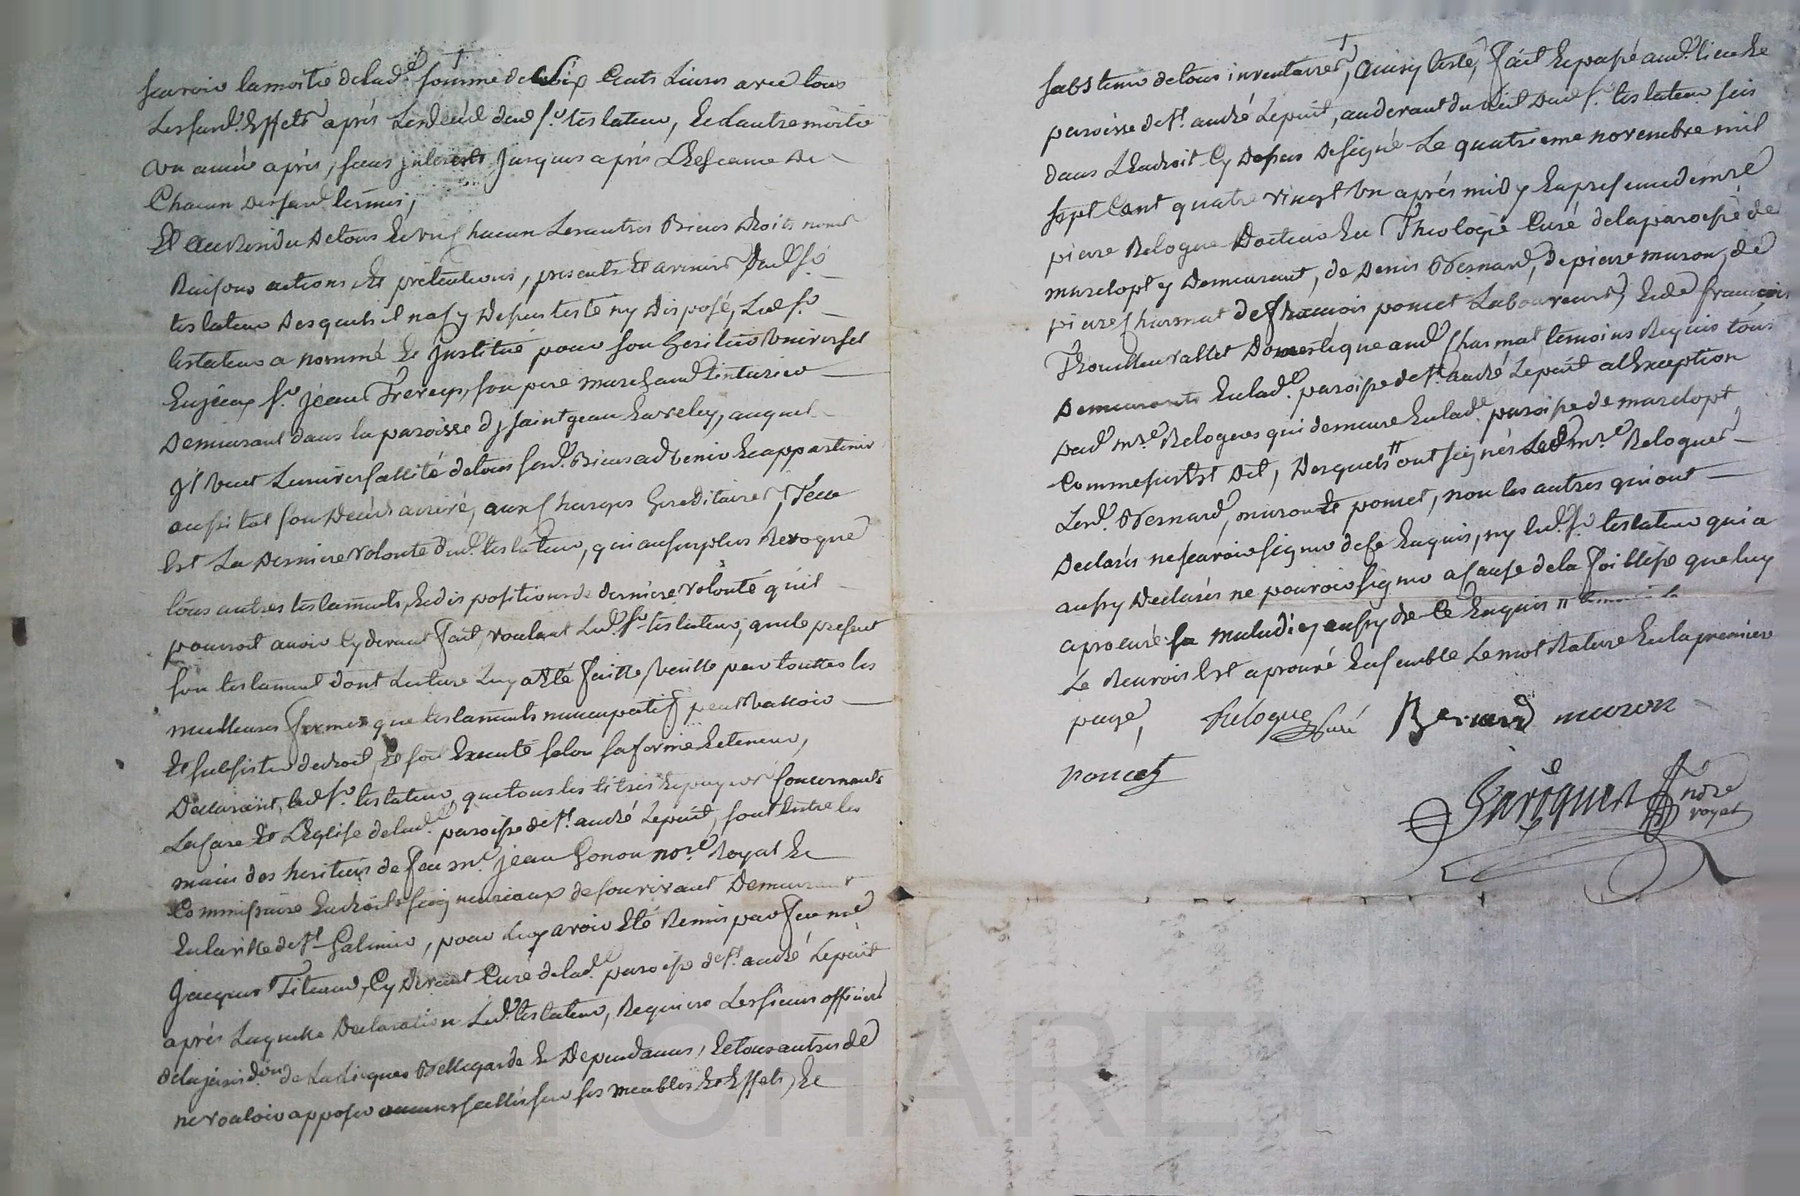 scavoir la moitié de lad.e somme de six Cents Livres avec tous
Lessusd. Effets après Ledécéd dud. s.r testateur, Et Lautre moitié
un année après, sans jnterests jusques aprés L'Escance de
Chacun dessusd. termes,
Et au Residu de tous Et un chacun Les autres Biens Droits noms
Raisons actions Et prétentions, presents Et avenirs Dud. s.r
testateur Desquels il na cy Depus testé ny Disposé, Led. s.r
testateur a nommé Et jnstitué pour son héritier Universel
s.r jean son pere marchand teinturier
Demeurant dans la paroisse de saint jean auquel
jl veut Luniversallité detous sesd. Biens advenir Et appartenir
aussi tot son Décéd arrivé, aux charges héréditaires, Telle
Est La Derniere volonté dud. testateur, qui ausurplus Revoque
tous autres testaments, Et dispositions de derniere volonté qu'il
pourroit avoir Cydevant fait, voulant Led. s.r testateur, que le present
son testament dont Lecture Luy a Eté faitte, veille par touttes les
meilleures formes que testaments nuncupatif peut valloir
Et subsister dedroit, Et soit Executé selon sa forme Et teneur,
Déclarant, led. s.r testateur, que tous les titres Et papiers concernants
La Cure Et L'Eglise de lad.e paroisse de S.t andré Lepuit, sont Entre les
mains des heritiers de feu m.e jean Gonon no.re Royal Et
Commissaire En droits seigneuriaux de son vivant Demeurant
En la ville de S.t Galmier, pour Luy avoir Eté Remis par feu m.re
Jacques Cy Devant Curé delad.e paroisse de S.t andré Lepuit
aprés Laquelle Declaration Led. testateur, Requiere Lessieurs officiers
dela jurisd.on de Bellegarde Et Dependances, Et tous autres de
ne vouloir apposer aucuns scellés sur ses meubles Et Effets, Et
sabstenir de tous inventaires, Ainsy testé, fait Et passé aud. lieu Et
paroisse de S.t andré Lepuit, audevant du dud. s.r testateur sis
dans L'Endroit Cy Dessus Designé Le quatrieme novembre mil
sept Cent quatre vingt Un aprés midy En presence de m.re
pierre Relogue Docteur En Theologie Curé dela paroisse de
marclopt y Demeurant, de Denis Bernard, de pierre muron, de
pierre Charmat de francois poncet Laboureurs, Et de francois
vallet Domestique aud. Charmat, temoins Requis tous
Demeurants En lad.e paroisse de S.t andré Lepuit al Exception
dud. m.re Relogues qui demeure En lad.e paroisse de marclopt
Comme sus Est Dit, Desquels ont signés Led. m.re Relogues
Lesd. Bernard, muron Et poncet, non les autres qui ont
Declarés ne scavoir signer de ce Enquis, ny led. s.r testateur qui a
aussy Déclarés ne pouvoir signer a cause de la foiblesse que luy
a procuré sa maladie, aussy de Ce Enquis
Le Renvois Est aprouvé Ensemble Le mot Rature En la premiere
page,
Relogue Curé
Bernard
muron
Poncet
nore
royal
CHAREYR